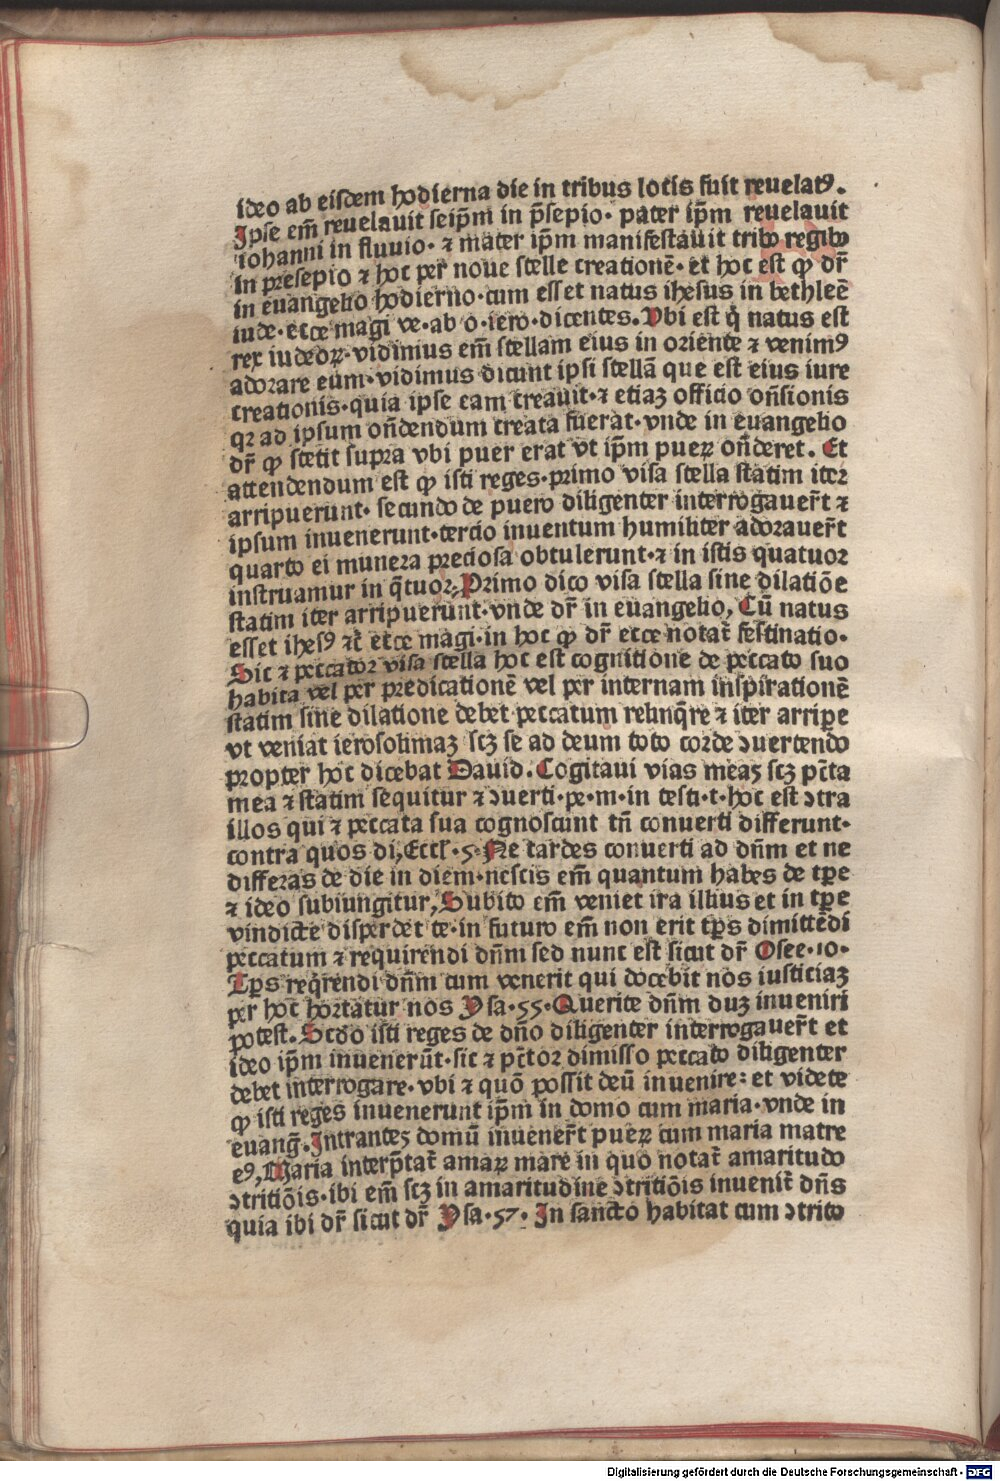 ideo ab eisdem hodierna die in tribus locis fuit reuelatꝰ.
Ipse em̄ reuelauit seip̄m in p̄sepio· pater ip̄m reuelauit
iohanni in fluuio· ⁊ mater ip̄m manifestauit tribꝰ regibꝰ
in presepio ⁊ hoc per noue stelle creationē· et hoc est ꝙ dr̄
in euangelio hodierno·cum esset natus ihesus in bethleē
iude·ecce magi ve·ab o·iero·dicentes. Vbi est q̄ natus est
rex iudeoꝝ·vidimus em̄ stellam eius in oriente ⁊ venimꝰ
adorare eum·vidimus dicunt ipsi stellā que est eius iure
creationis·quia ipse eam creauit·⁊ etiaꝫ officio on̄sionis
qꝛ ad ipsum on̄dendum creata fuerat·vnde in euangelio
dr̄ ꝙ stetit supra vbi puer erat vt ip̄m pueꝝ on̄deret. Et
attendendum est ꝙ isti reges·primo visa stella statim iter
arripuerunt· secundo de puero diligenter interrogauer̄t ⁊
ipsum inuenerunt·tercio inuentum humiliter adorauer̄t
quarto ei munera preciosa obtulerunt·⁊ in istis quatuor
instruamur in q̄tuor, Primo dico visa stella sine dilatiōe
statim iter arripuerunt·vnde dr̄ in euangelio, Cū natus
esset ihesꝰ ⁊c̄ ecce magi·in hoc ꝙ dr̄ ecce notat̄ festinatio·
Sic ⁊ peccator visa stella hoc est cognitione de peccato suo
habita vel per predicationē vel per internam inspirationē
statim sine dilatione debet peccatum relinq̄re ⁊ iter arripe
vt veniat ierosolimaꝫ scꝫ se ad deum toto corde ↄuertendo
propter hoc dicebat Dauid. Cogitaui vias meas scꝫ pc̄ta
mea ⁊ statim sequitur ⁊ ↄuerti·pe·m·in testi·t·hoc est ↄtra
illos qui ⁊ peccata sua cognoscunt tn̄ conuerti differunt·
contra quos di, Eccl̄·5· Ne tardes conuerti ad dn̄m et ne
differas de die in diem·nescis em̄ quantum habes de tp̄e
⁊ ideo subiungitur, Subito em̄ veniet ira illius et in tp̄e
vindicte disperdet te·in futuro em̄ non erit tp̄s dimittēdi
peccatum ⁊ requirendi dn̄m sed nunc est sicut dr̄ Osee·10·
Tp̄s req̄rendi dn̄m cum venerit qui docebit nos iusticiaꝫ
per hoc hortatur nos Ysa·55·Querite dn̄m duꝫ inueniri
potest. Scdo isti reges de dn̄o diligenter interrogauer̄t et
ideo ip̄m inuenerūt·sic ⁊ pc̄tor dimisso peccato diligenter
debet interrogare·vbi ⁊ quō possit deū inuenire: et videte
ꝙ isti reges inuenerunt ip̄m in domo cum maria·vnde in
euanḡ. Intrantes domū inuener̄t pueꝝ cum maria matre
eꝰ, Maria interp̄tat̄ amaꝝ mare in quo notat̄ amaritudo
ↄtritiōis·ibi em̄ scꝫ in amaritudine ↄtritiōis inuenit̄ dn̄s
quia ibi dr̄ sicut dr̄ Ysa·57· In sancto habitat cum ↄtrito
Digitalisierung gefördert durch die Deutsche Forschungsgemeinschaft - DFG